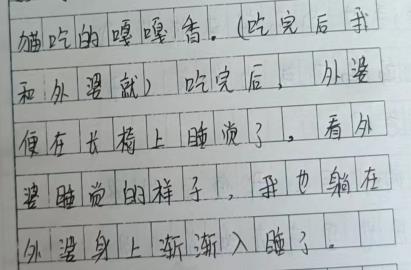 猫吃的嘎嘎香。(吃完后我
和外婆就) 吃完后，外婆
便在长椅上睡觉了。看外
婆睡觉的样子，我也躺在
外婆身上渐渐入睡了。